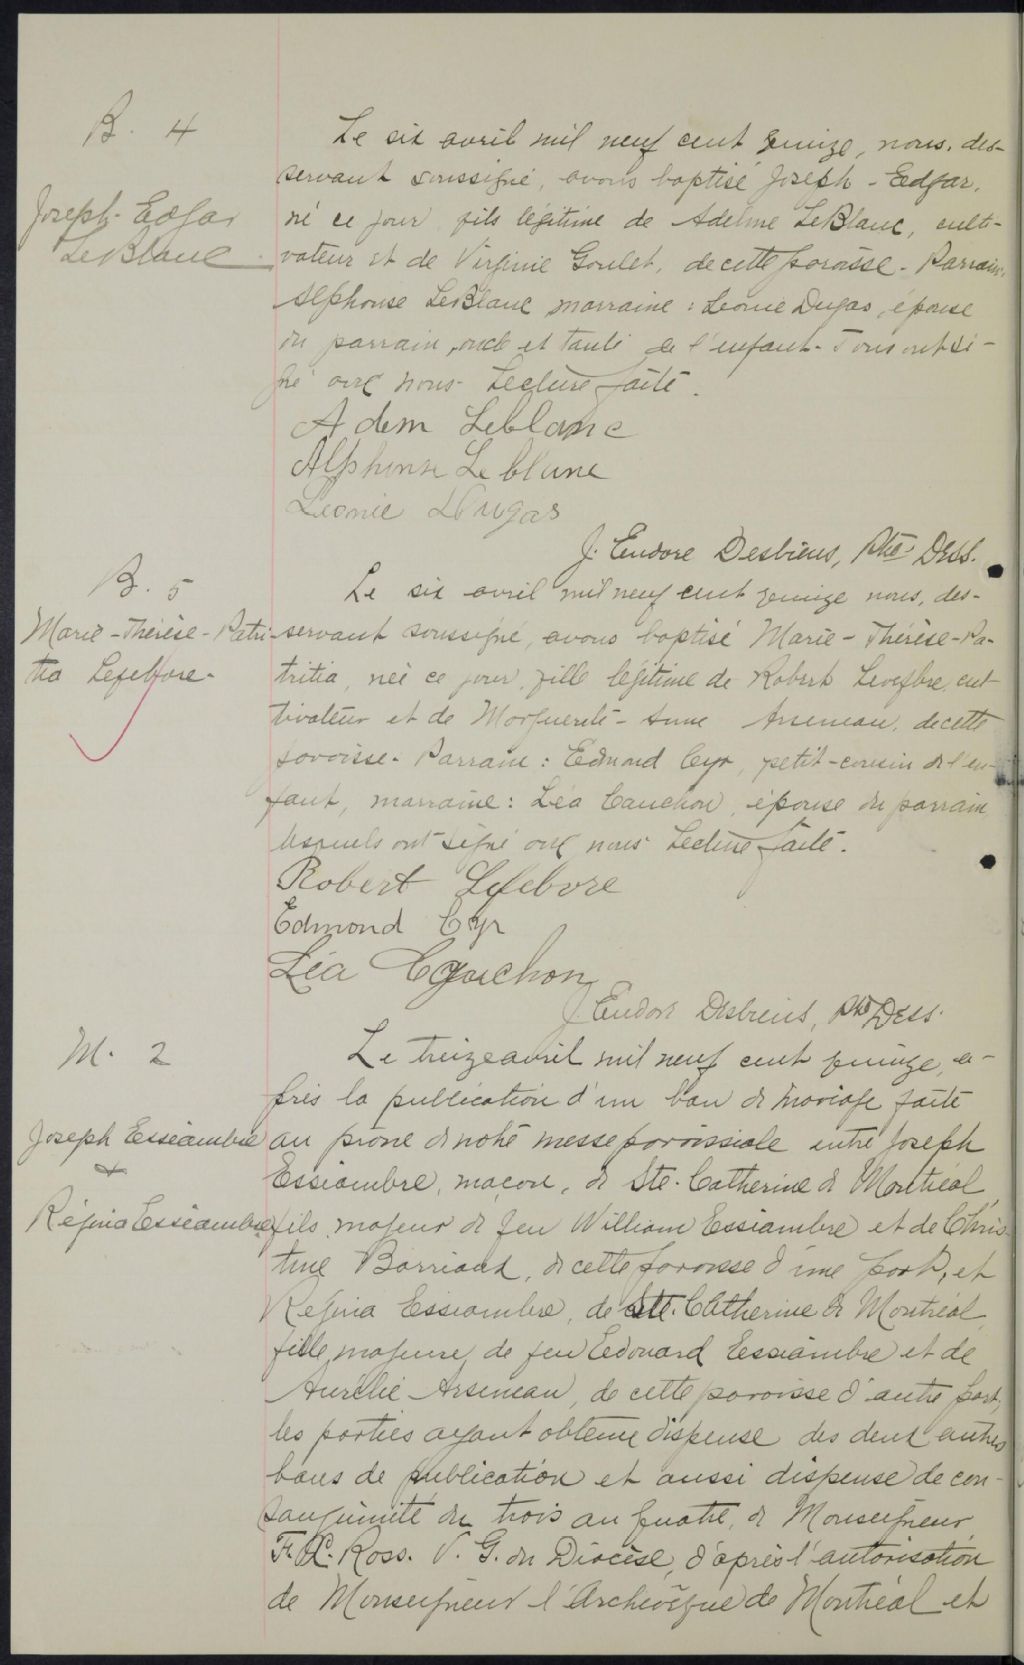 B. 4
Joseph-Edgar
LeBlanc
Le six avril mil neuf cent quinze, nous, des-
servant soussigné, avons baptisé Joseph-Edgar,
né ce jour, fils légitime de LeBlanc, culti-
vateur et de Virginie Goulet, de cette paroisse. Parrain:
Alphonse LeBlanc marraine: Leonie Dugas, épouse
du parrain, oncle et tante de l'enfant. Tous ont si-
gné avec nous. Lecture faite.
Adem Leblanc
Alphonse Leblanc
Leonie Dugas
J. Eudore Desbiens, Ptre Dess.
B. 5
Marie-Thérèse-Patri-
tia Lefebvre.
Le six avril mil neuf cent quinze nous, des-
servant soussigné, avons baptisé Marie-Thérèse-Pa-
tritia, née ce jour, fille légitime de Robert Levefbre, cul-
tivateur et de Marguerite-Anne Arseneau, de cette
paroisse. Parrain: Edmond Cyr, petit-cousin de l'en-
fant, marraine: Léa Cauchon, épouse du parrain
lesquels ont signé avec nous. Lecture faite.
Robert Lefebvre
Edmond Cyr
Léa Cauchon
J. Eudore Desbiens, Ptre Dess.
M. 2
Joseph Essiambre
&
Régina Essiambre
Le treize avril mil neuf cent quinze, a-
près la publication d'un ban de mariage faite
au prône de notre messe paroissiale entre Joseph
Essiambre, maçon, de Ste. Catherine de Montréal,
fils majeur de feu William Essiambre et de Chris-
tine Barriault, de cette paroisse d'une part, et
Régina Essiambre, de Ste. Catherine de Montréal,
fille majeure de feu Edouard Essiambre et de
Aurélie Arseneau, de cette paroisse d'autre part,
les parties ayant obtenu dispense des deux autres
bans de publication et aussi dispense de con-
sanguinité du trois au quatre, de Monseigneur
F. X. Ross. V. G. du Diocèse, d'après l'autorisation
de Monseigneur l'Archevêque de Montréal et